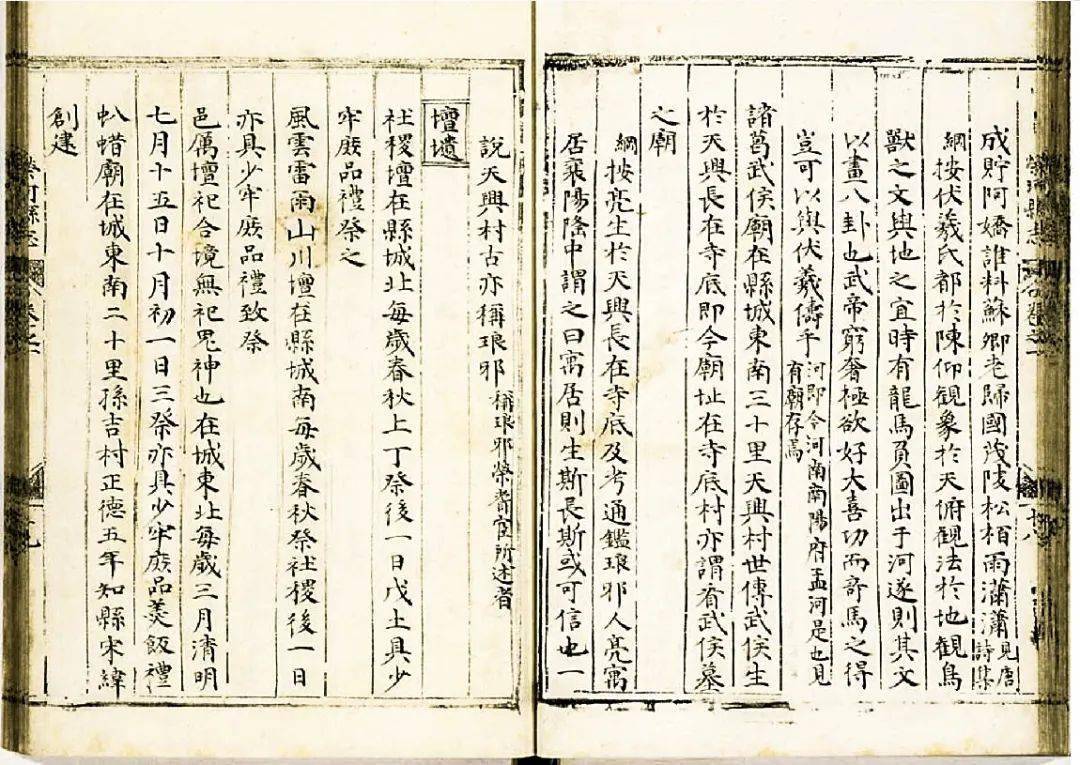 成貯阿嬌誰料蘇卿老歸國茂陵松栢雨瀟瀟見唐詩集
綱按伏羲氏都於陳仰觀象於天俯觀法於地觀鳥
獸之文與地之宜時有龍馬負圖出于河遂則其文
以畫八卦也武帝窮奢極欲好大喜功而竒馬之得
豈可以與伏羲儔乎河即今河南南陽府孟河是也見有廟存焉
諸葛武侯廟在縣城東南三十里天興村世傳武侯生
於天興長在寺底即今廟址在寺底村亦謂有武侯墓
之廟
綱按亮生於天興長在寺底及考通鑑琅邪人亮寓
居襄陽隆中謂之曰寓居則生斯長斯或可信也一
說天興村古亦稱琅邪稱琅邪榮耆宦所述者
壇壝
社稷壇在縣城北每歲春秋上丁祭後一日戊土具少
牢庪品禮祭之
風雲雷雨山川壇在縣城南每歲春秋祭社稷後一日
亦具少牢庪品禮致祭
邑厲壇祀合境無祀鬼神也在城東北每歲三月清明
七月十五日十月初一日三祭亦具少牢庪品羹飯禮
䖝蜡廟在城東南二十里孫吉村正德五年知縣宋緯
創建
榮河縣志
卷之一
十九
榮河縣志
卷之一
十八